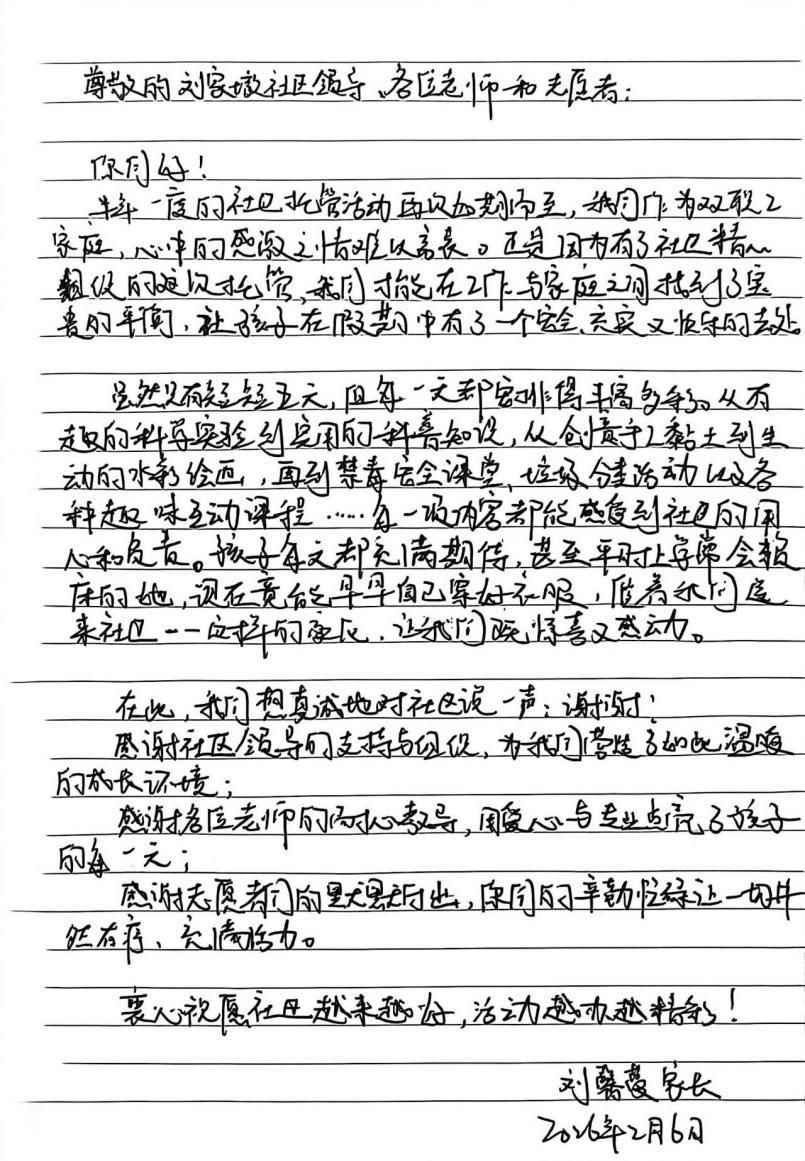 尊敬的刘家墩社区领导、各位老师和志愿者：
你们好！
半年一度的社区托管活动再次如期而至，我们作为双职工
家庭，心中的感激之情难以言表。正是因为有了社区精心
组织的这次托管，我们才能在工作与家庭之间找到了宝
贵的平衡，让孩子在假期中有了一个安全、充实又快乐的去处。
虽然只有短短五天，但每一天都安排得丰富多彩。从有
趣的科学实验到实用的科普知识，从创意手工黏土到生
动的水彩绘画，再到禁毒安全课堂、垃圾分类活动以及各
种趣味互动课程……每一项内容都能感受到社区的用
心和负责。孩子每天都充满期待，甚至平时上学常会赖
床的她，现在竟能早早自己穿好衣服，催着我们送
来社区——这样的变化，让我们既惊喜又感动。
在此，我们想真诚地对社区说一声：谢谢！
感谢社区领导的支持与组织，为我们营造了如此温暖
的成长环境；
感谢各位老师的耐心教导，用爱心与专业点亮了孩子
的每一天；
感谢志愿者们的默默付出，你们的辛勤忙碌让一切井
然有序、充满活力。
衷心祝愿社区越来越好，活动越办越精彩！
刘馨蔓家长
2026年2月6日